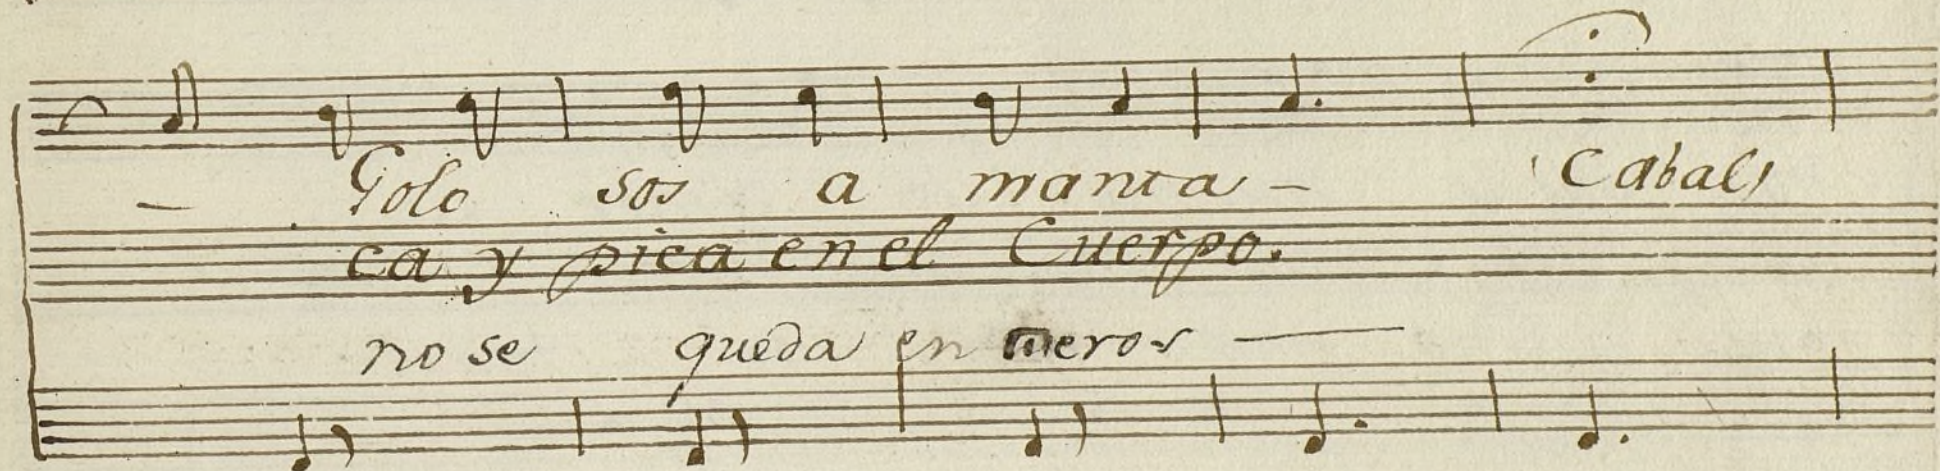 — Golo sos a manta — Cabal,
ca y pica en el Cuerpo.
no se queda en meros —